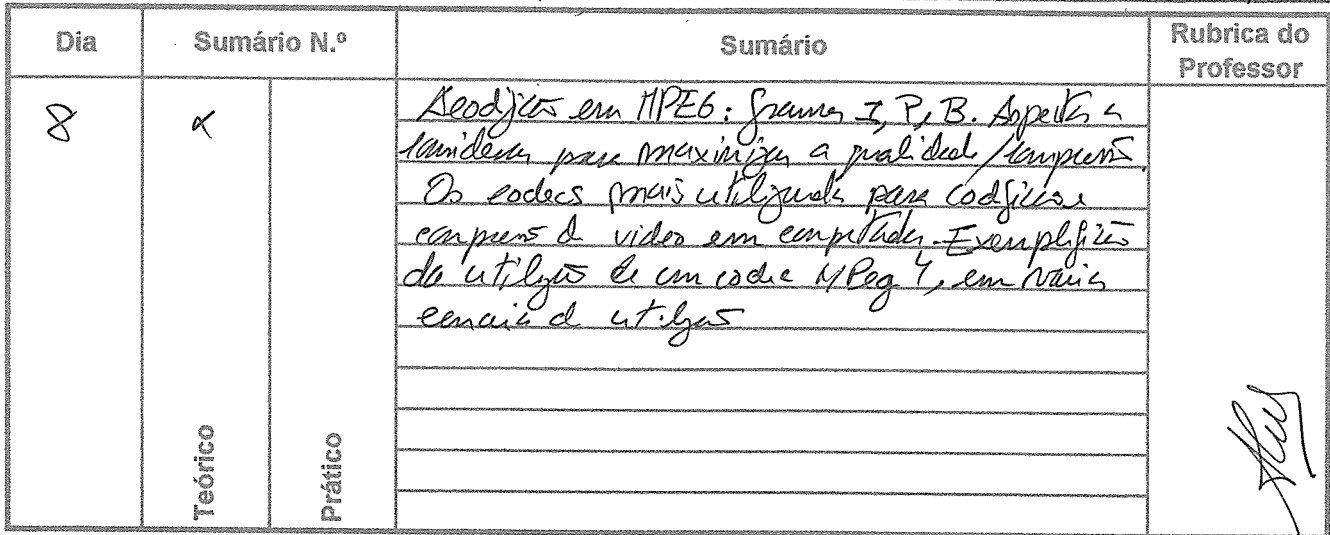 Dia Sumário N.º Sumário Rubrica do Professor
8
em MPEG: frames I, P, B. Aspectos a
considerar para maximizar a qualidade/compressão
Os codecs mais utilizados para codificar e
compressão de video em computador. Exemplificação
da utilização de um codec MPeg 4, em vários
cenários de utilização
Teórico
Prático